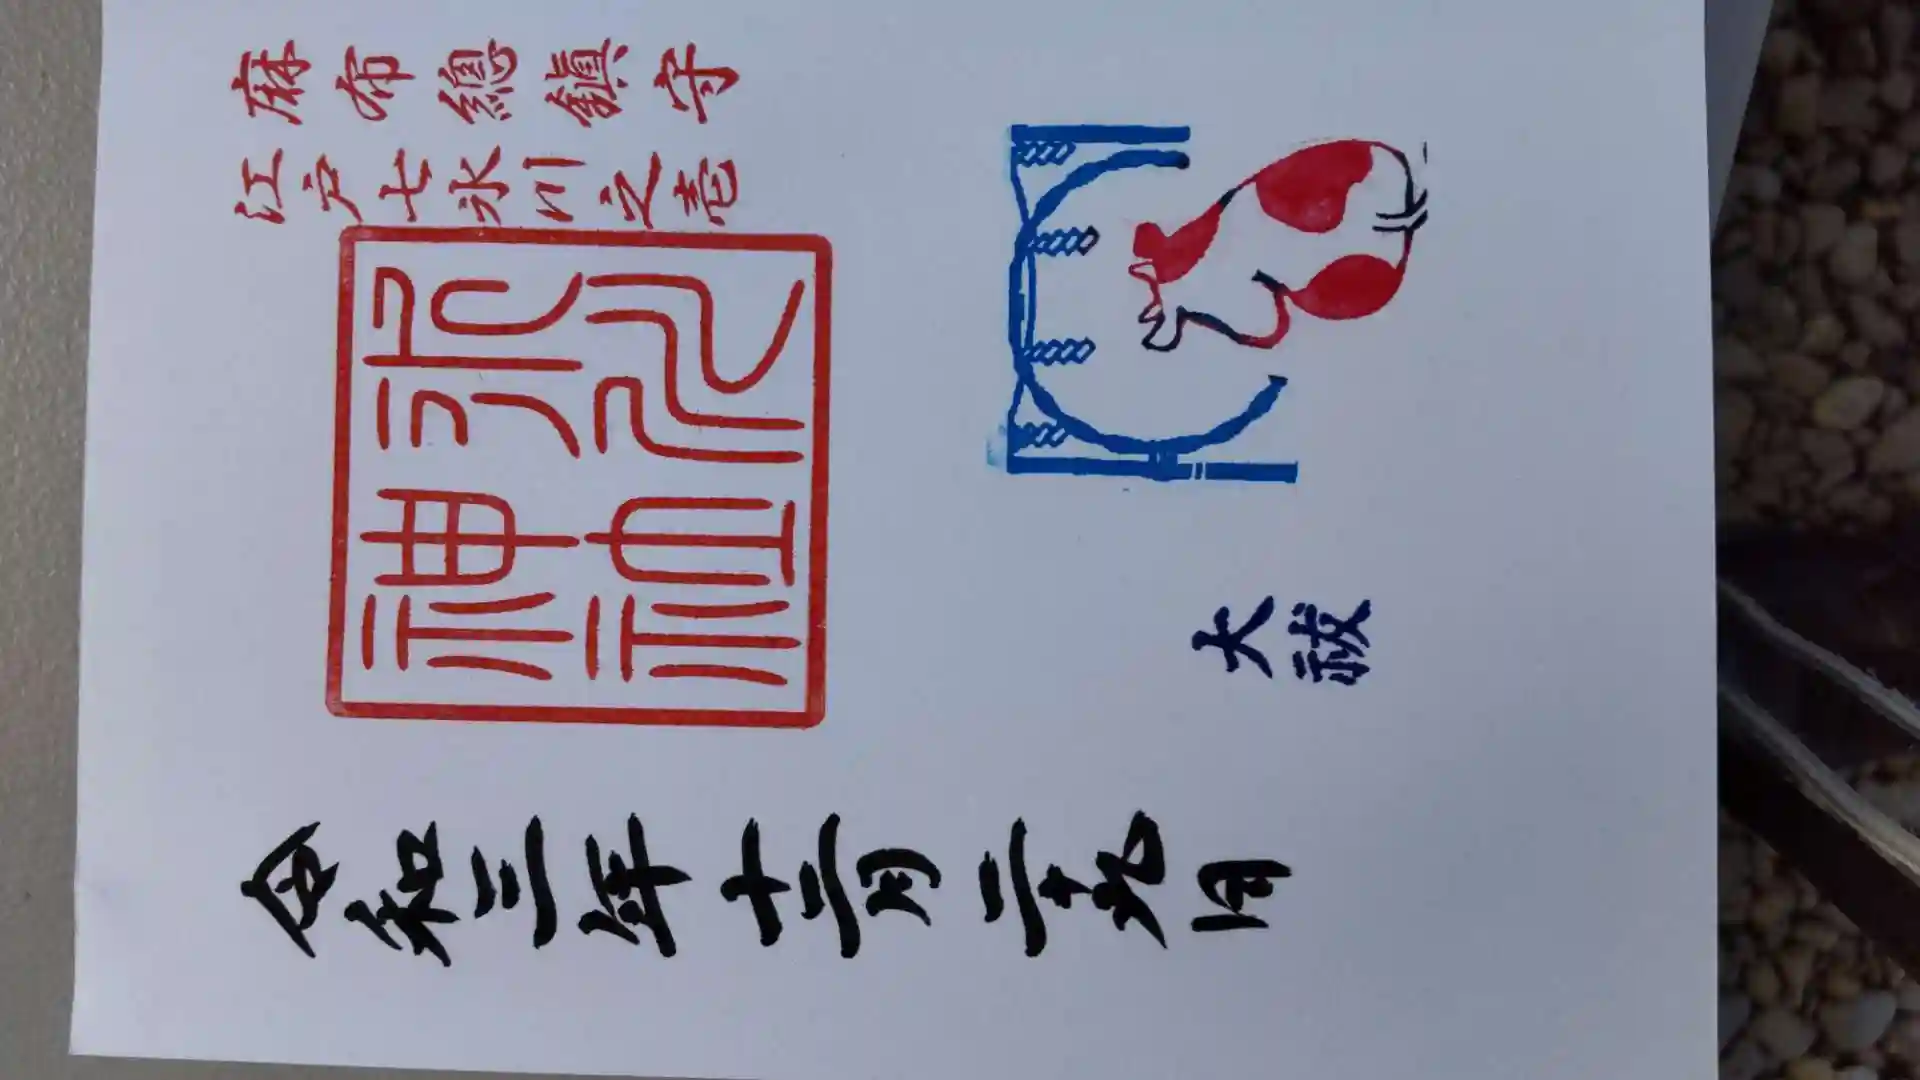 麻布總鎮守
江戸七氷川之壱
氷川
神社
大祓
令和三年十二月二十九日